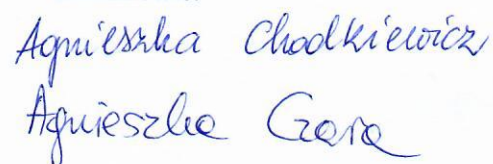 Agnieszka Chodkiewicz
Agnieszka Czara